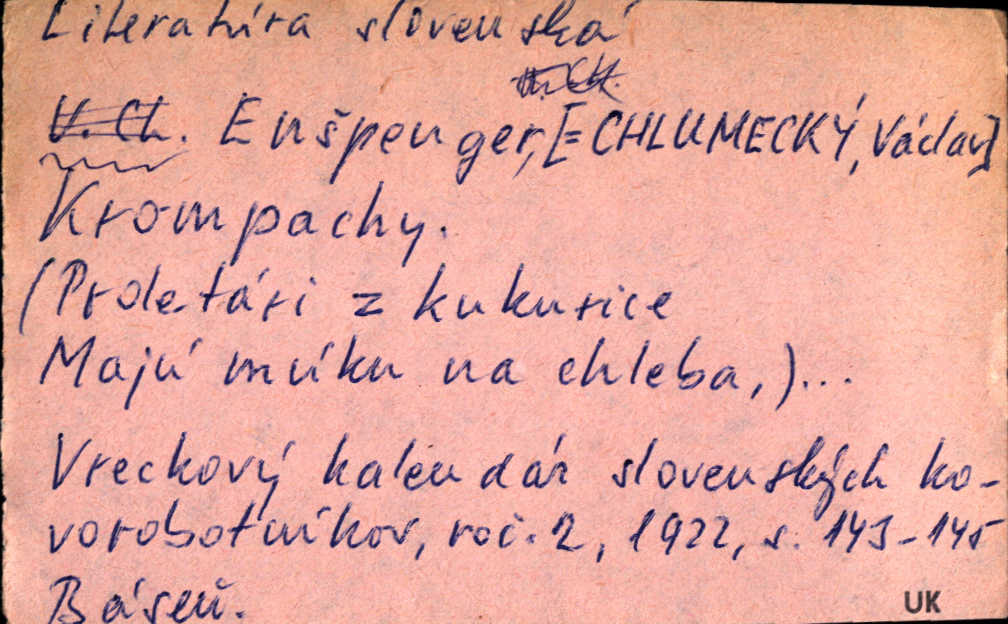 Literatúra slovenská
V. Ch. Enšpenger, [= CHLUMECKÝ, Václav]
Krompachy.
(Proletári z kukurice
Majú múku na chleba,)...
Vreckový kalendár slovenských ko-
vorobotníkov, roč. 2, 1922, s. 143-145
Báseň.
UK